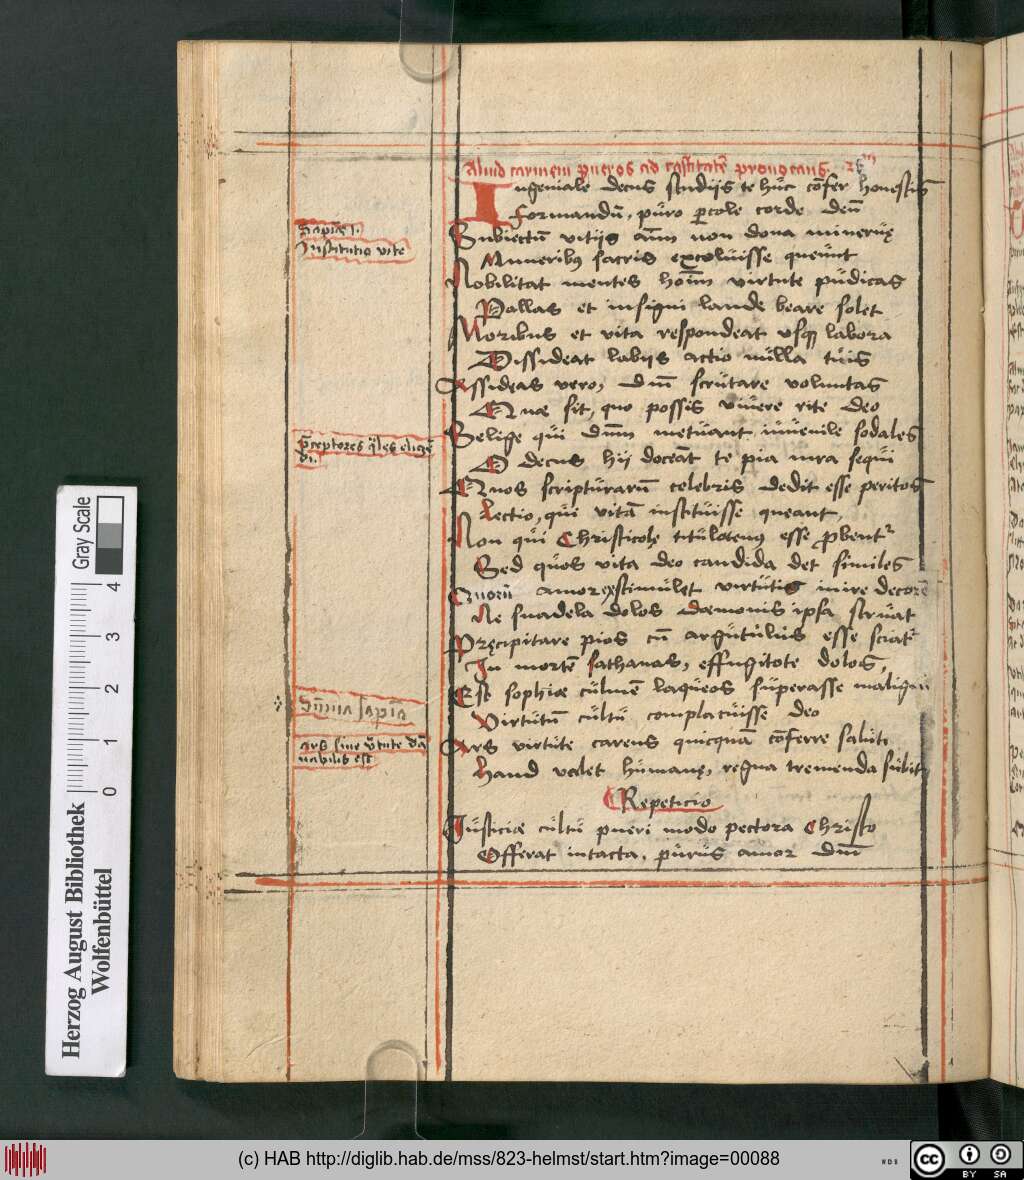 Aliud carmen pueros ad castitatē prouocans. 25
Ingeniale decus studijs te hūc cōfer honestis
Formandū, puro percole corde deū
Subiectū vitijs aīm non dona mineruę
Muneribus sacris excoluisse queunt
Nobilitat mentes hoīm virtute pudicas
Pallas et insigni laude beare solet
Moribus et vita respondeat vsque labora
Dissideat labijs actio nulla tuis
Assideas vero, dn̄i scrutare voluntas
Quae sit, quo possis viuere rite deo
Selige qui dn̄m metuant iuuenile sodales
O decus hij doceāt te pia iura sequi
Quos scripturarū celebris dedit esse peritos
Lectio, qui vitā instituisse queant
Non qui Christicolę titulotenus esse probentur
Sed quos vita deo candida det similes
Quorū amor exstimulet virtutis inire decorē
Ne suadela dolos daemonis ipsa struat
Pręcipitare pios cū argutulus esse sciatur
In mortē sathanas, effugitote dolos,
Est sophiae culmē laqueos superasse maligni
Virtutū cultu complacuisse deo
Ars virtute carens quicquā cōferre saluti
Haud valet humanę, regna tremenda subit
Repeticio
Iusticiae cultū pueri modo pectora Christo
Offerat intacta, purus amor dn̄i
Institutio vite
p̄ceptores q̄les eligē
di.
Sūma sapiā
Ars sine v̄tute dā
nabilis est
Gray Scale
4 3 2 1 0
Herzog August Bibliothek
Wolfenbüttel
(c) HAB http://diglib.hab.de/mss/823-helmst/start.htm?image=00088
WDB
cc BY SA